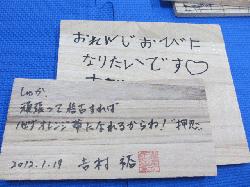 おれんじおびに
なりたいです♡
しゅか、
頑張って稽古すれば
必ずオレンジ帯になれるからね!押忍
2012.1.19 吉村